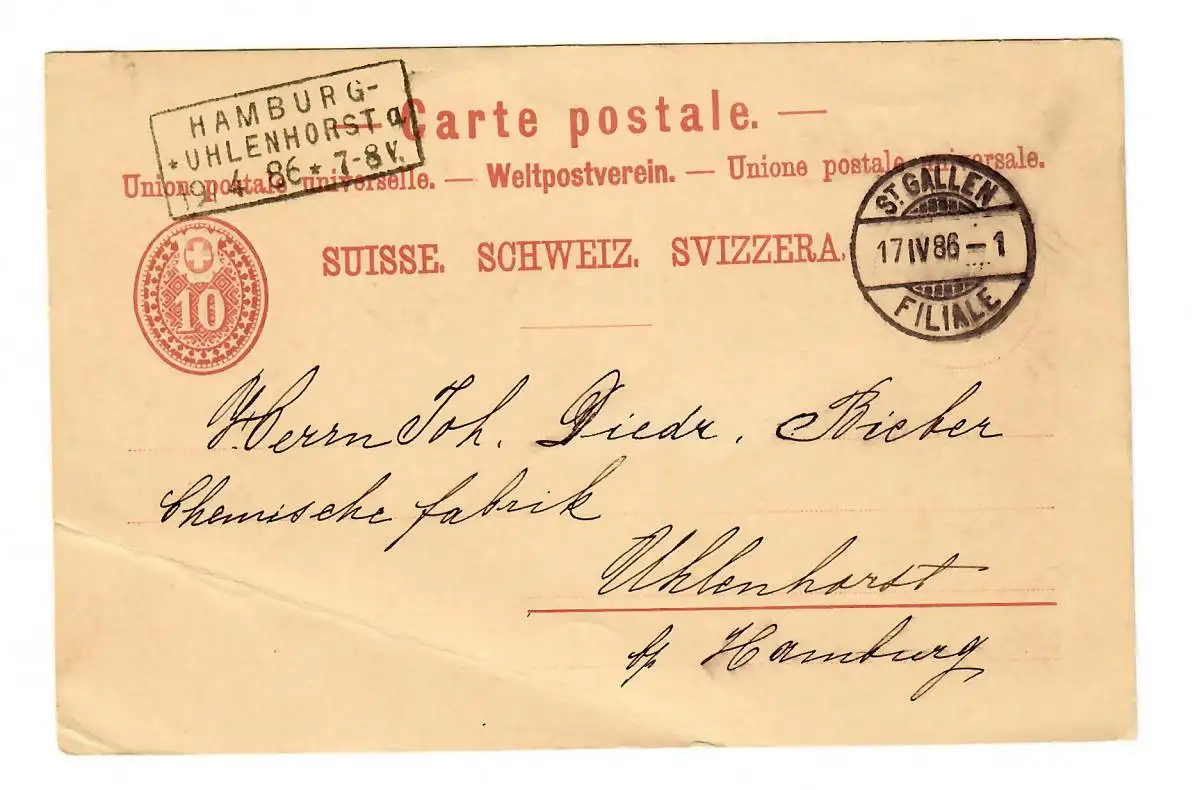 HAMBURG-
*UHLENHORST a
19/4 86 * 7-8 V.
— Carte postale. —
Union postale universelle. — Weltpostverein. — Unione postale universale.
ST. GALLEN
17 IV 86 – 1
FILIALE
10
SUISSE. SCHWEIZ. SVIZZERA.
Herrn Joh. Diedr. Bieber
Chemische fabrik
Uhlenhorst
b/ Hamburg